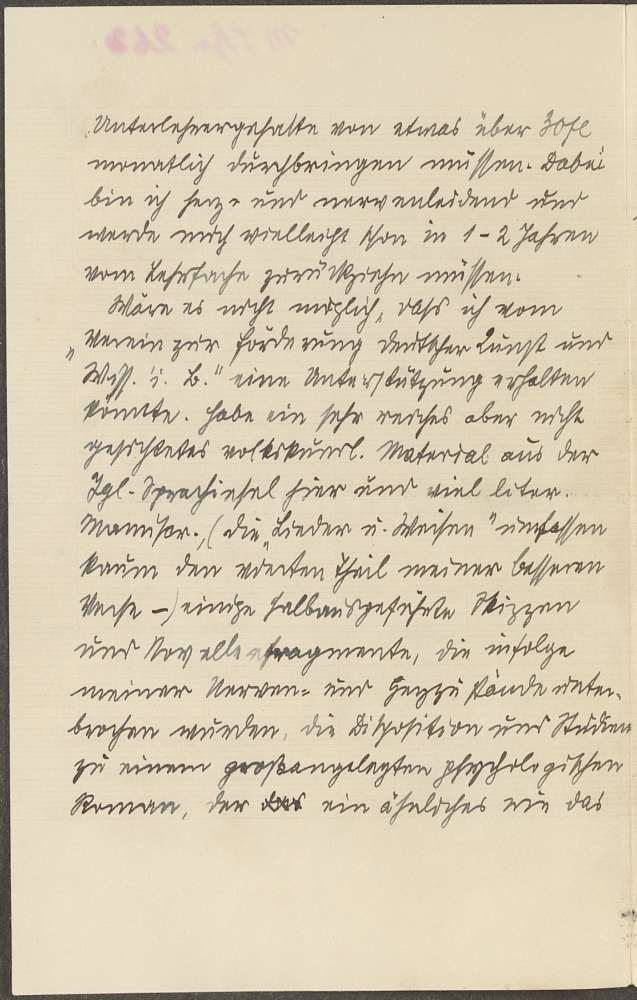 Unterlehrergehalte von etwas über 30 fl
monatlich durchbringen müssen. Dabei
bin ich herz- und nervenleidend und
werde mich vielleicht schon in 1-2 Jahren
vom Lehrfache zurückziehn müssen.
Wäre es nicht möglich, dass ich vom
„Verein zur Förderung deutscher Kunst und
Wiss. i. B." eine Unterstützung erhalten
könnte. Habe ein sehr reiches aber nicht
gesichtetes volkskundl. Material aus der
Igl. Sprachinsel hier und viel liter.
Manuscr., (die „Lieder u. Weisen" umfassen
kaum den vierten Theil meiner besseren
Verse -) einige halbausgeführte Skizzen
und Novellenfragmente, die infolge
meiner Nerven- und Herzzustände unter-
brochen wurden, die Disposition und Studien
zu einem großangelegten psychologischen
Roman, der ein ähnliches wie das